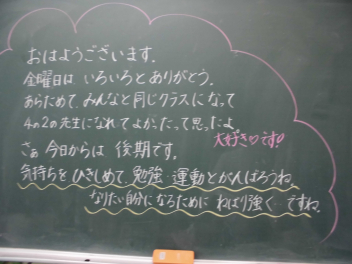 おはようございます。
金曜日は いろいろとありがとう。
あらためて、みんなと同じクラスになって
4の2の先生になれてよかったって思ったよ。
大好き♡です!
さぁ 今日からは 後期です。
気持ちを ひきしめて 勉強 運動とがんばろうね。
なりたい自分になるために ねばり強く ですね。